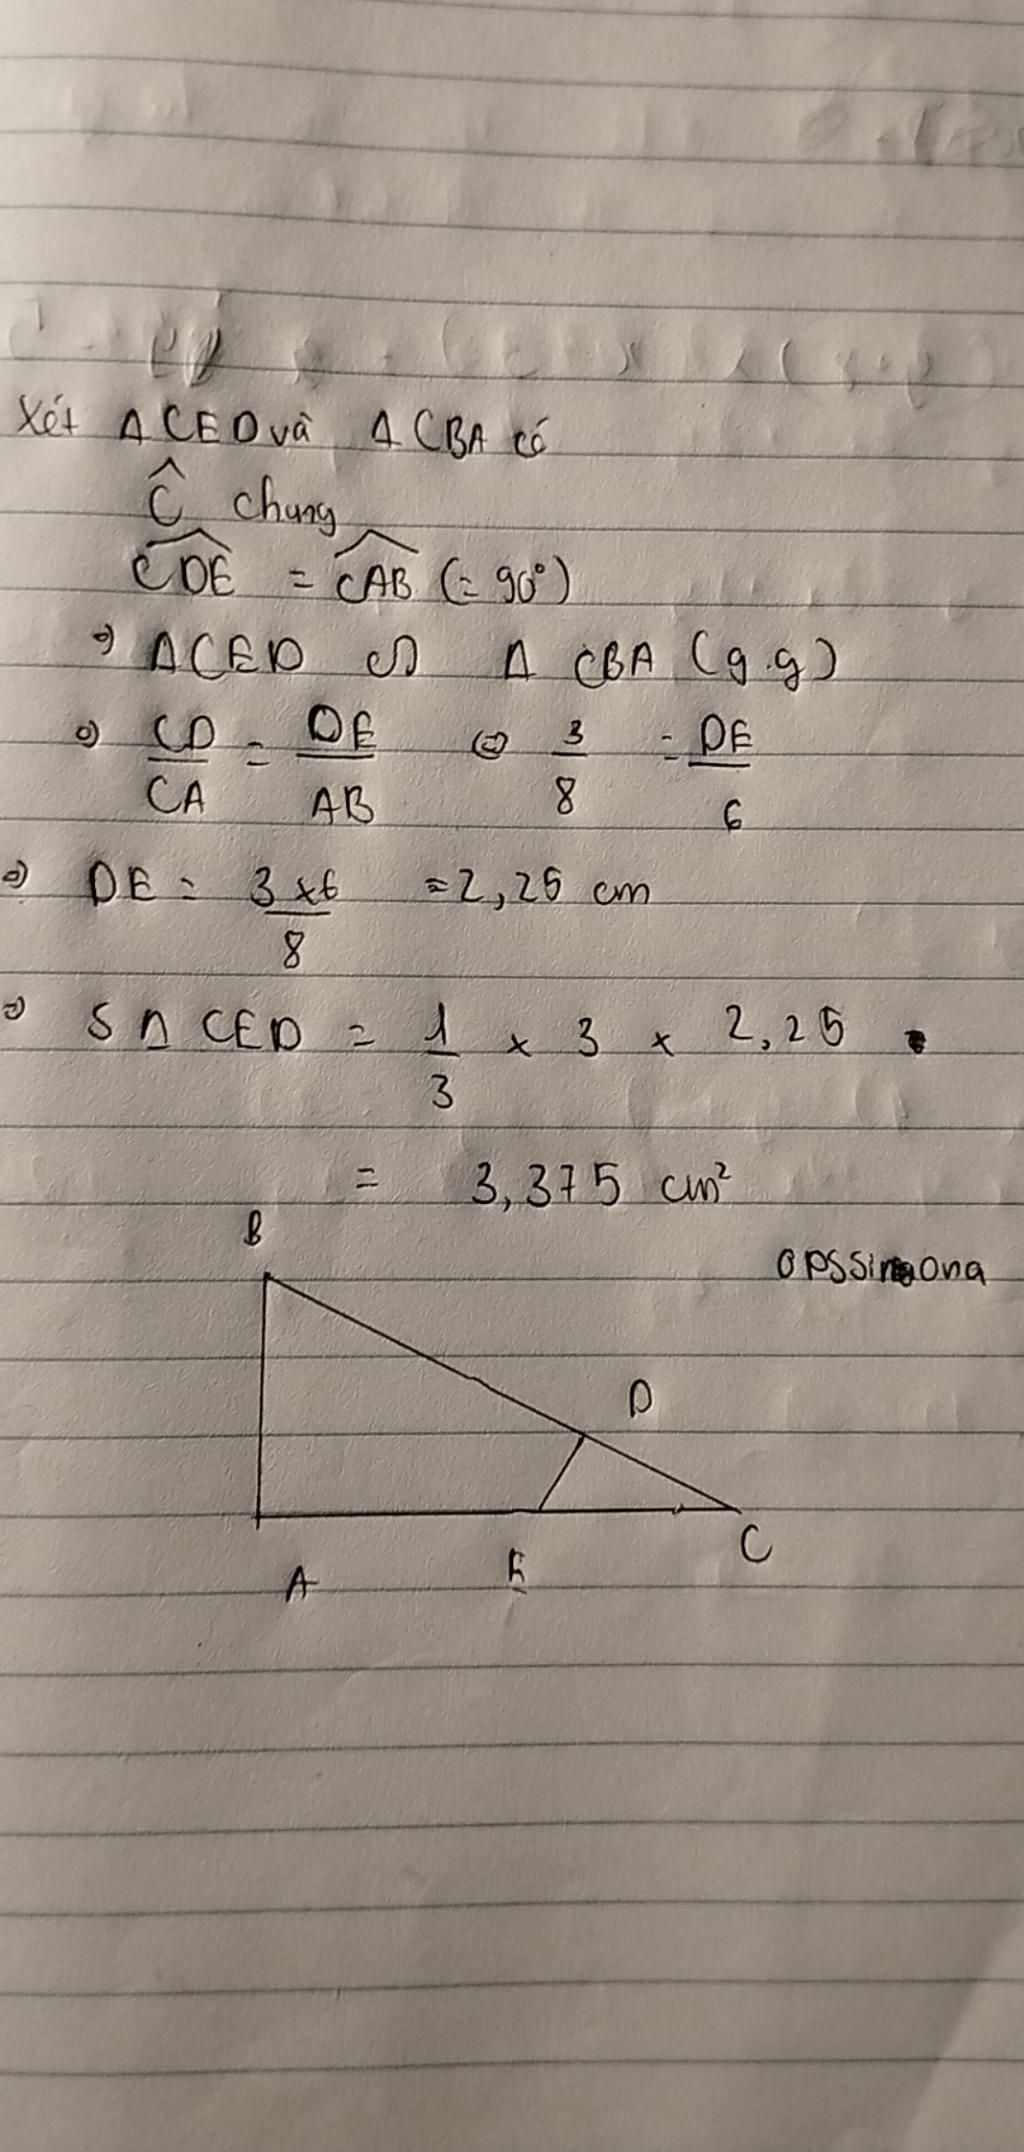 Xét Δ CED và Δ CBA có
Ĉ chung
\widehat{CDE} = \widehat{CAB} (= 90°)
=> Δ CED ∽ Δ CBA (g.g)
=> CD/CA = DE/AB <=> 3/8 = DE/6
=> DE = 3x6/8 = 2,25 cm
=> S Δ CED = 1/3 x 3 x 2,25
= 3,375 cm²
B
D
C
A
E